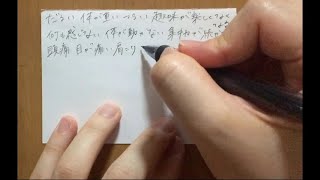 だるい 体が重い つらい 趣味が楽しくなくなる
何も感じない 体が動かない 集中力が
頭痛 目が痛い 肩こり